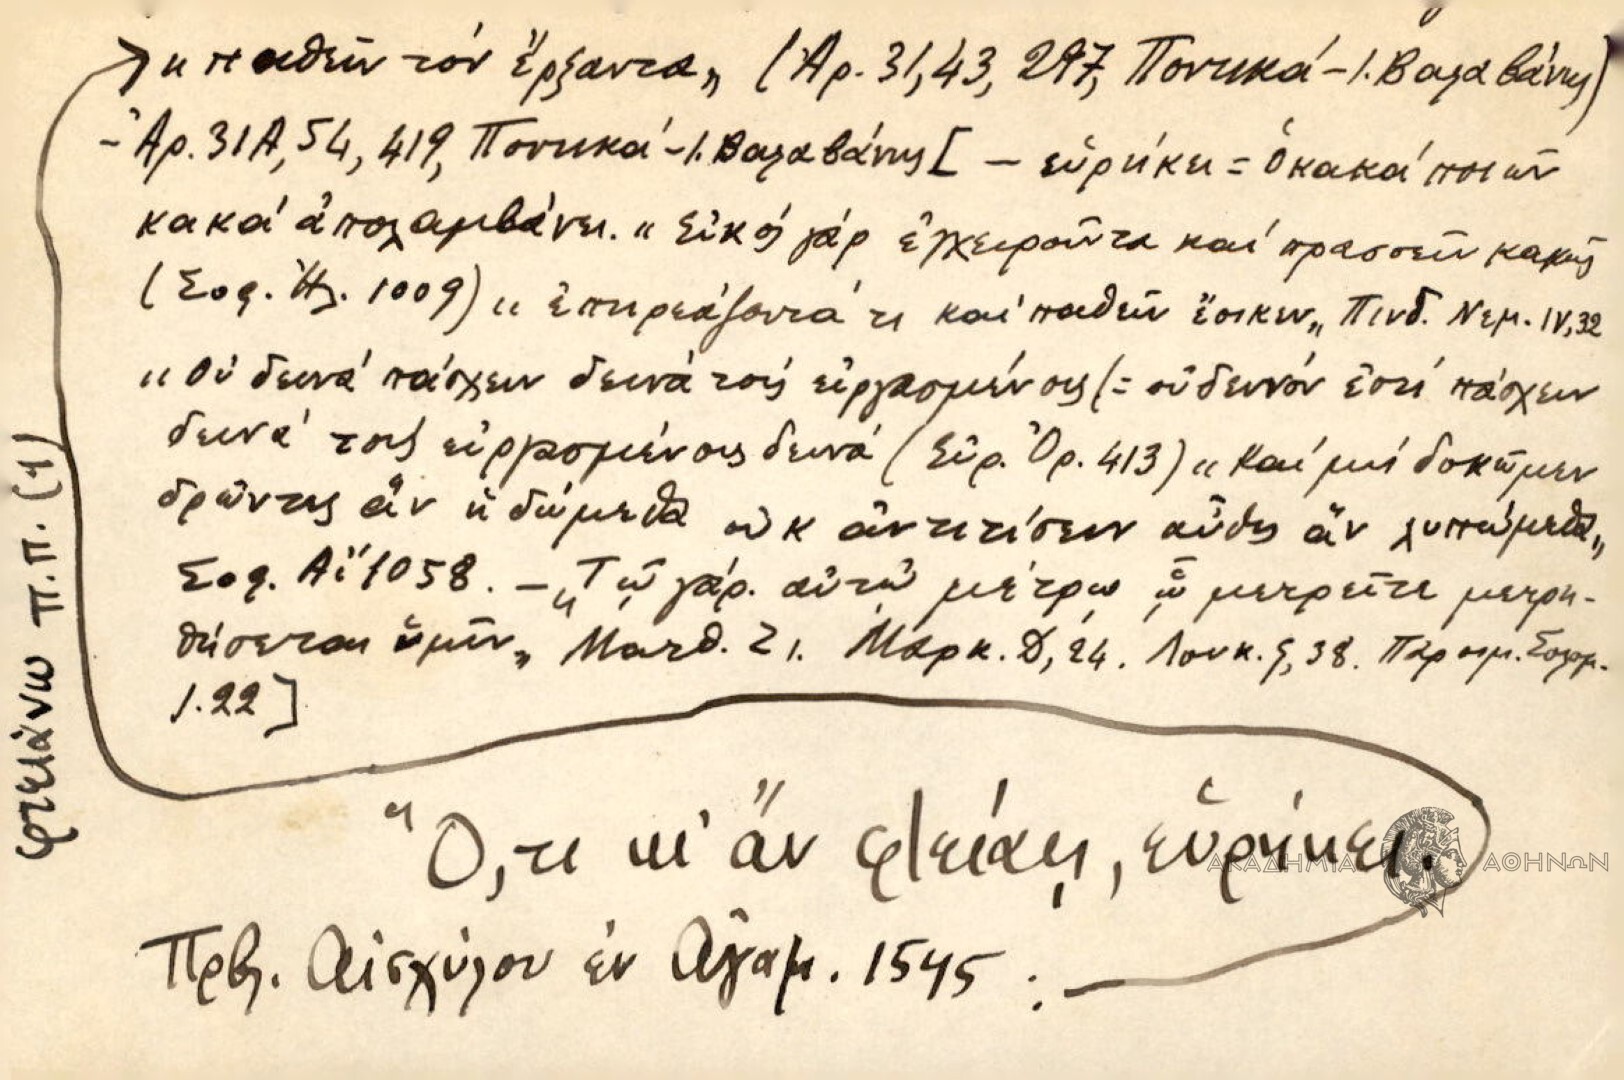 φτειάνω π.π. (1)
"παθεῖν τόν ἔρξαντα„ (Ἀρ. 31, 43, 297, Ποντικά - Ι. Βαλαβάνης)
- Ἀρ. 31Α, 54, 419, Ποντικά - Ι. Βαλαβάνης [ - εὑρήκει = ὁ κακά ποιῶν
κακά ἀπολαμβάνει. "Εἰκός γάρ ἐγχειροῦντα καί πράσσειν κακῶς
(Σοφ. Ἠλ. 1009) " ἐπηρεάζοντά τι καί παθεῖν ἔοικεν„ Πινδ. Νεμ. IV, 32
"Οὐ δεινά πάσχειν δεινά τούς εἰργασμένους (= οὐ δεινόν ἐστί πάσχειν
δεινά τούς εἰργασμένους δεινά (Εὐρ. Ὀρ. 413) " Καί μή δοκῶμεν
δρῶντες ἄν ἡδώμεθα οὐκ ἀντιτίσειν αὖθις ἄν λυπώμεθα„
Σοφ. Αἴ 1058. - "Τῷ γάρ. αὐτῷ μέτρῳ ᾧ μετρεῖτε μετρη-
θήσεται ὑμῖν„ Ματθ. Ζ 1. Μάρκ. Δ, 24. Λουκ. ς, 38. Παροιμ. Σολομ.
1.22]
"Ὅ,τι κι' ἄν φτειάῃς, εὑρήκει.
Πρβλ. Αἰσχύλου ἐν Ἀγαμ. 1545 :
ΑΚΑΔΗΜΙΑ ΑΘΗΝΩΝ